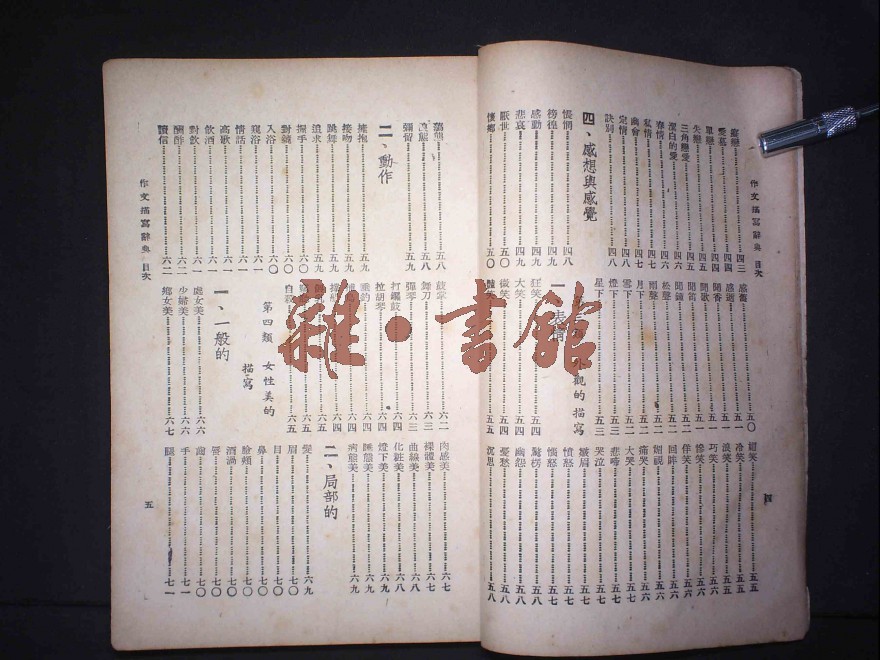 作文描寫辭典 目次
愛慕……四四
單戀……四四
失戀……四五
三角戀愛……四六
潔白的愛……四六
春情……四六
私情……四七
幽會……四七
定情……四八
訣別……四八
四、感想與感覺
悵惘……四八
徬徨……四九
感動……四九
悲哀……四九
厭世……五〇
懷鄉……五〇
感舊……五〇
感逝……五一
聞香……五一
聞歌……五一
聞笛……五一
聞鐘……五二
松聲……五二
雨聲……五二
月下……五二
雪下……五二
燈下……五三
星下……五三
外觀的描寫
一、表情
狂笑……五四
大笑……五四
微笑……五五
笑……五五
媚笑……五五
冷笑……五五
笑……五五
巧笑……五六
慘笑……五六
佯笑……五六
回眸……五六
媚視……五六
痛哭……五六
大哭……五七
悲啼……五七
哭泣……五七
顰眉……五七
憤怒……五七
惱怒……五七
驚愕……五八
幽怨……五八
憂愁……五八
沉思……五八
四
五八
憨態……五八
彌留……五九
二、動作
擁抱……五九
接吻……五九
跳舞……五九
追求……五九
握手……六〇
對鏡……六〇
入浴……六〇
窺浴……六一
情話……六一
高歌……六一
飲酒……六一
對飲……六一
酬酢……六二
讀信……六二
鼓掌……六二
舞刀……六三
彈琴……六三
打鑼鼓……六四
拉胡琴……六四
垂釣……六四
六四
六四
六五
六五
自殺……六五
第四類 女性美的描寫
一、一般的
處女美……六六
少婦美……六六
鄉女美……六七
肉感美……六七
裸體美……六七
曲線美……六八
化粧美……六八
燈下美……六九
睡態美……六九
病態美……六九
二、局部的
髮……六九
眉……七〇
目……七〇
鼻……七〇
臉頰……七〇
酒渦……七〇
唇……七〇
齒……七〇
手……七一
腿……七一
作文描寫辭典 目次
五
雜·書館